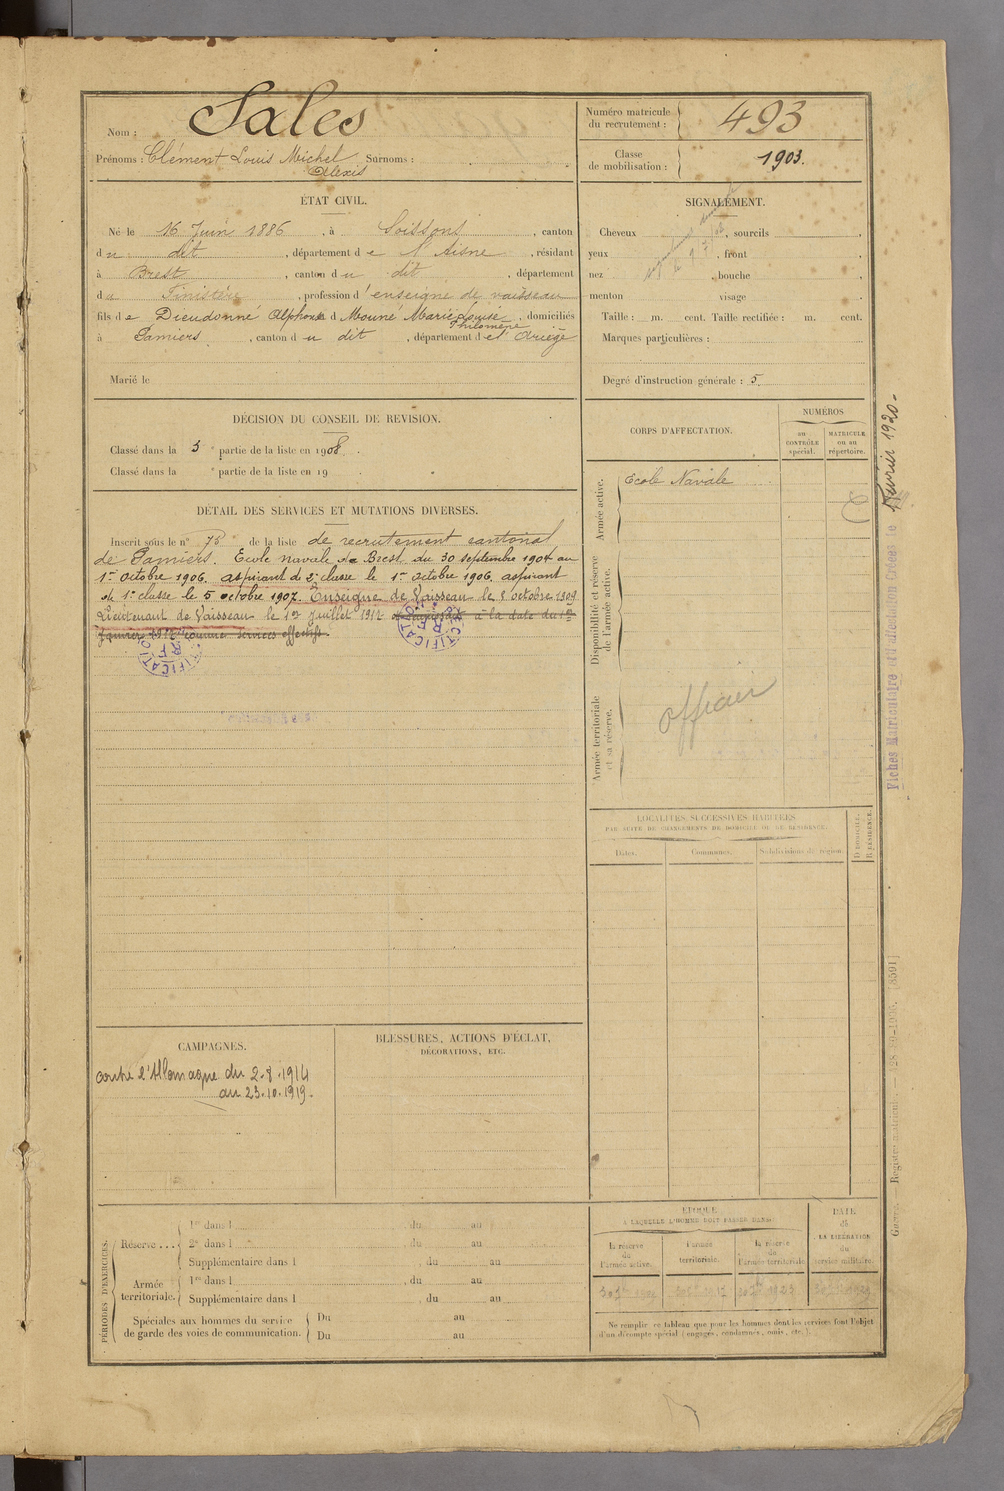 Nom : Sales
Prénoms : Clément Louis Michel Surnoms :
Alexis
Numéro matricule
du recrutement : 493
Classe
de mobilisation : 1903.
ÉTAT CIVIL.
Né le 16 Juin 1886, à Soissons, canton
du dit, département de l'Aisne, résidant
à Brest, canton du dit, département
du Finistère, profession d'enseigne de vaisseau
fils de Dieudonné Alphonse et d Mouné Marie Louise, domiciliés
Philomène
à Pamiers, canton du dit, département de l'Ariège
Marié le
SIGNALEMENT.
Cheveux , sourcils
yeux , front
nez , bouche
menton visage
Taille : m. cent. Taille rectifiée : m. cent.
Marques particulières :
Degré d'instruction générale : 5
DÉCISION DU CONSEIL DE REVISION.
Classé dans la 5e partie de la liste en 1908.
Classé dans la e partie de la liste en 19
DÉTAIL DES SERVICES ET MUTATIONS DIVERSES.
Inscrit sous le n° 75 de la liste de recrutement cantonal
de Pamiers. Ecole navale de Brest du 30 septembre 1904 au
1er Octobre 1906. aspirant de 2e classe le 1er Octobre 1906. aspirant
de 1e classe le 5 octobre 1907. Enseigne de Vaisseau le 8 Octobre 1909
Lieutenant de Vaisseau le 1er Juillet 1912 à la date du 1er
Janvier 1912 comme services effectifs.
RECTIFICATION
RF
RECTIFICATION
RF
CORPS D'AFFECTATION.
NUMÉROS
au
CONTRÔLE
spécial.
MATRICULE
ou au
répertoire.
Armée active.
Ecole Navale
Disponibilité et réserve
de l'armée active.
Armée territoriale
et sa réserve.
officier
Fiches Matriculaire et d'affectation Créées le Février 1920-
LOCALITÉS SUCCESSIVES HABITÉES
PAR SUITE DE CHANGEMENTS DE DOMICILE OU DE RÉSIDENCE.
Dates.
Communes.
Subdivisions de région.
D. DOMICILE.
R. RÉSIDENCE.
CAMPAGNES.
contre l'Allemagne du 2.8.1914
au 23.10.1919.
BLESSURES, ACTIONS D'ÉCLAT,
DÉCORATIONS, ETC.
PÉRIODES D'EXERCICES.
Réserve...
1re dans l , du au
2e dans l , du au
Supplémentaire dans l , du au
Armée
territoriale.
1re dans l , du au
Supplémentaire dans l , du au
Spéciales aux hommes du service
de garde des voies de communication.
Du au
Du au
ÉPOQUE
À LAQUELLE L'HOMME DOIT PASSER DANS:
la réserve
de
l'armée active.
l'armée
territoriale.
la réserve
de
l'armée territoriale
DATE
de
LA LIBÉRATION
du
service militaire.
Ne remplir ce tableau que pour les hommes dont les services font l'objet
d'un décompte spécial (engagés, condamnés, omis, etc.).